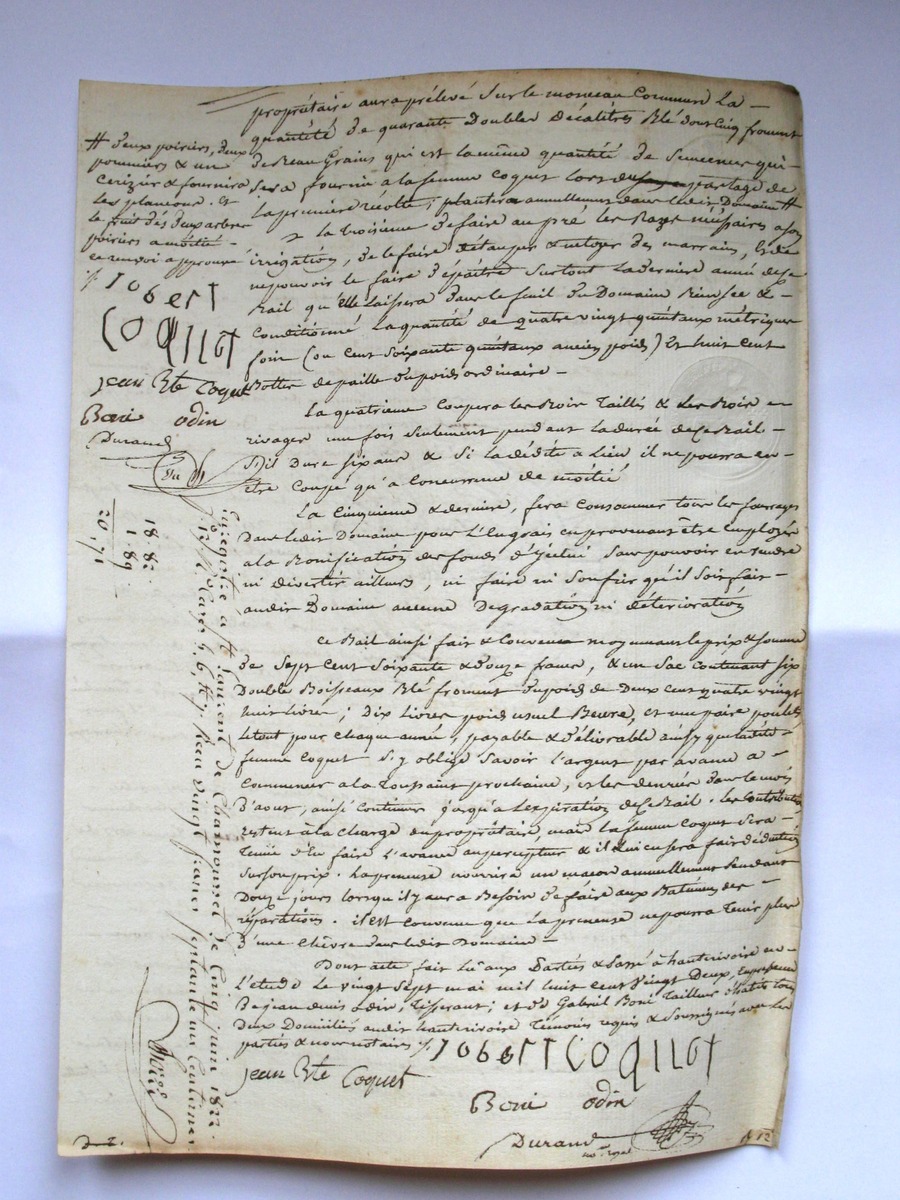 propriétaire aura prélevé Sur le monceau Commun La
quantité De quarante Doubles Décalitres Blé dont Cinq froment
De Beau Grains qui est La même quantité De Semences qui
Sera fournie a la femme Coquet Lors du partage De
La première récolte ; plantera annuellement dans Ledit Domaine #
# Deux poiriers, deux
pommiers & un
Cerizier & fournira
Les plançons. Et
le fruit dés deux arbres
poiriers a moitié
ce renvoi approuvé
JoberT
COQUOT
Jean Bte Coquet
Boni odin
Durand
La troisieme De faire au pré les Razes néssaires a son
irrigation, De le faire Détauper & netoyer Des marrains, & De
ne pouvoir le faire Dépaitre Surtout La derniere année De ce
Bail qu'elle Laissera Dans le fenil Du Domaine Réussée &
Conditionné La quantité De quatre vingt quintaux métriques
foin (ou Cent Soixante quintaux ancien poids) Et huit Cent
Bottes De paille Du poids ordinaire
La quatrieme Coupera les Bois Taillis & Les Bois en
rivages une fois Seulement pendant La durée De Ce Bail
S'il Dure Six ans & Si La dédite a Lieu il ne pourra en
être Coupé qu'a Concurrence De moitié
La Cinquieme & derniere, fera Consommer tous les fourrages
Dans Ledit Domaine pour L'Engrais en provenant être Employés
a la Bonification Des fonds D'ycelui Sans pouvoir en vendre
ni divertir ailleurs, ni faire ni Souffrir qu'il Soit fait
audit Domaine aucune Dégradation ni Détérioration
Ce Bail ainsi fait & Convenu moyennant le prix & Somme
De Sept Cent Soixante & douze francs, & un Sac Contenant Six
Double Boisseaux Blé froment Du poids De Deux Cent quatre vingt
huit Livres ; Dix Livres poids usuel Beurre, et une paire poulets
Le tout pour Chaque année, payable & Délivrable ainsy que ladite
femme Coquet S'y oblige Savoir L'argent par avance a
Commencer a la Toussaint prochaine, et les denrées Dans le mois
D'aout, ainsi Continuer Jusqu'a Lexpiration De Ce Bail. Les Contributions
restent à la Charge Du propriétaire mais La femme Coquet Sera
Tenue D'en faire L'avance au percepteur & il Lui en Sera fait déduction
Sur Son prix. La preneuse nourrira un maçon annuellement Pendant
Douze jours Lorsqu'il y aura Besoin De faire aux Batimens Des
réparations. il est Convenu que La preneuse ne pourra Tenir plus
D'une Chèvre Dans Ledit Domaine
Dont acte fait Lu aux Parties & Passé à hauterivoire en
L'etude Le vingt Sept mai mil huit cent vingt Deux, En présence
De jean denis odin, Tisserant ; et De Gabriel Boni Tailleur D'habits tous
Deux Domiciliés audit hauterivoire Témoins requis & Soussignés avec Les
parties & nous notaire
JoberT COQUOT
Jean Bte Coquet
Boni odin
Durand
not. royal
18.82
1.89
20,71
Enregistré a St Laurent de Chamousset le Cinq juin 1822.
Reçu vingt francs Septante un Centimes